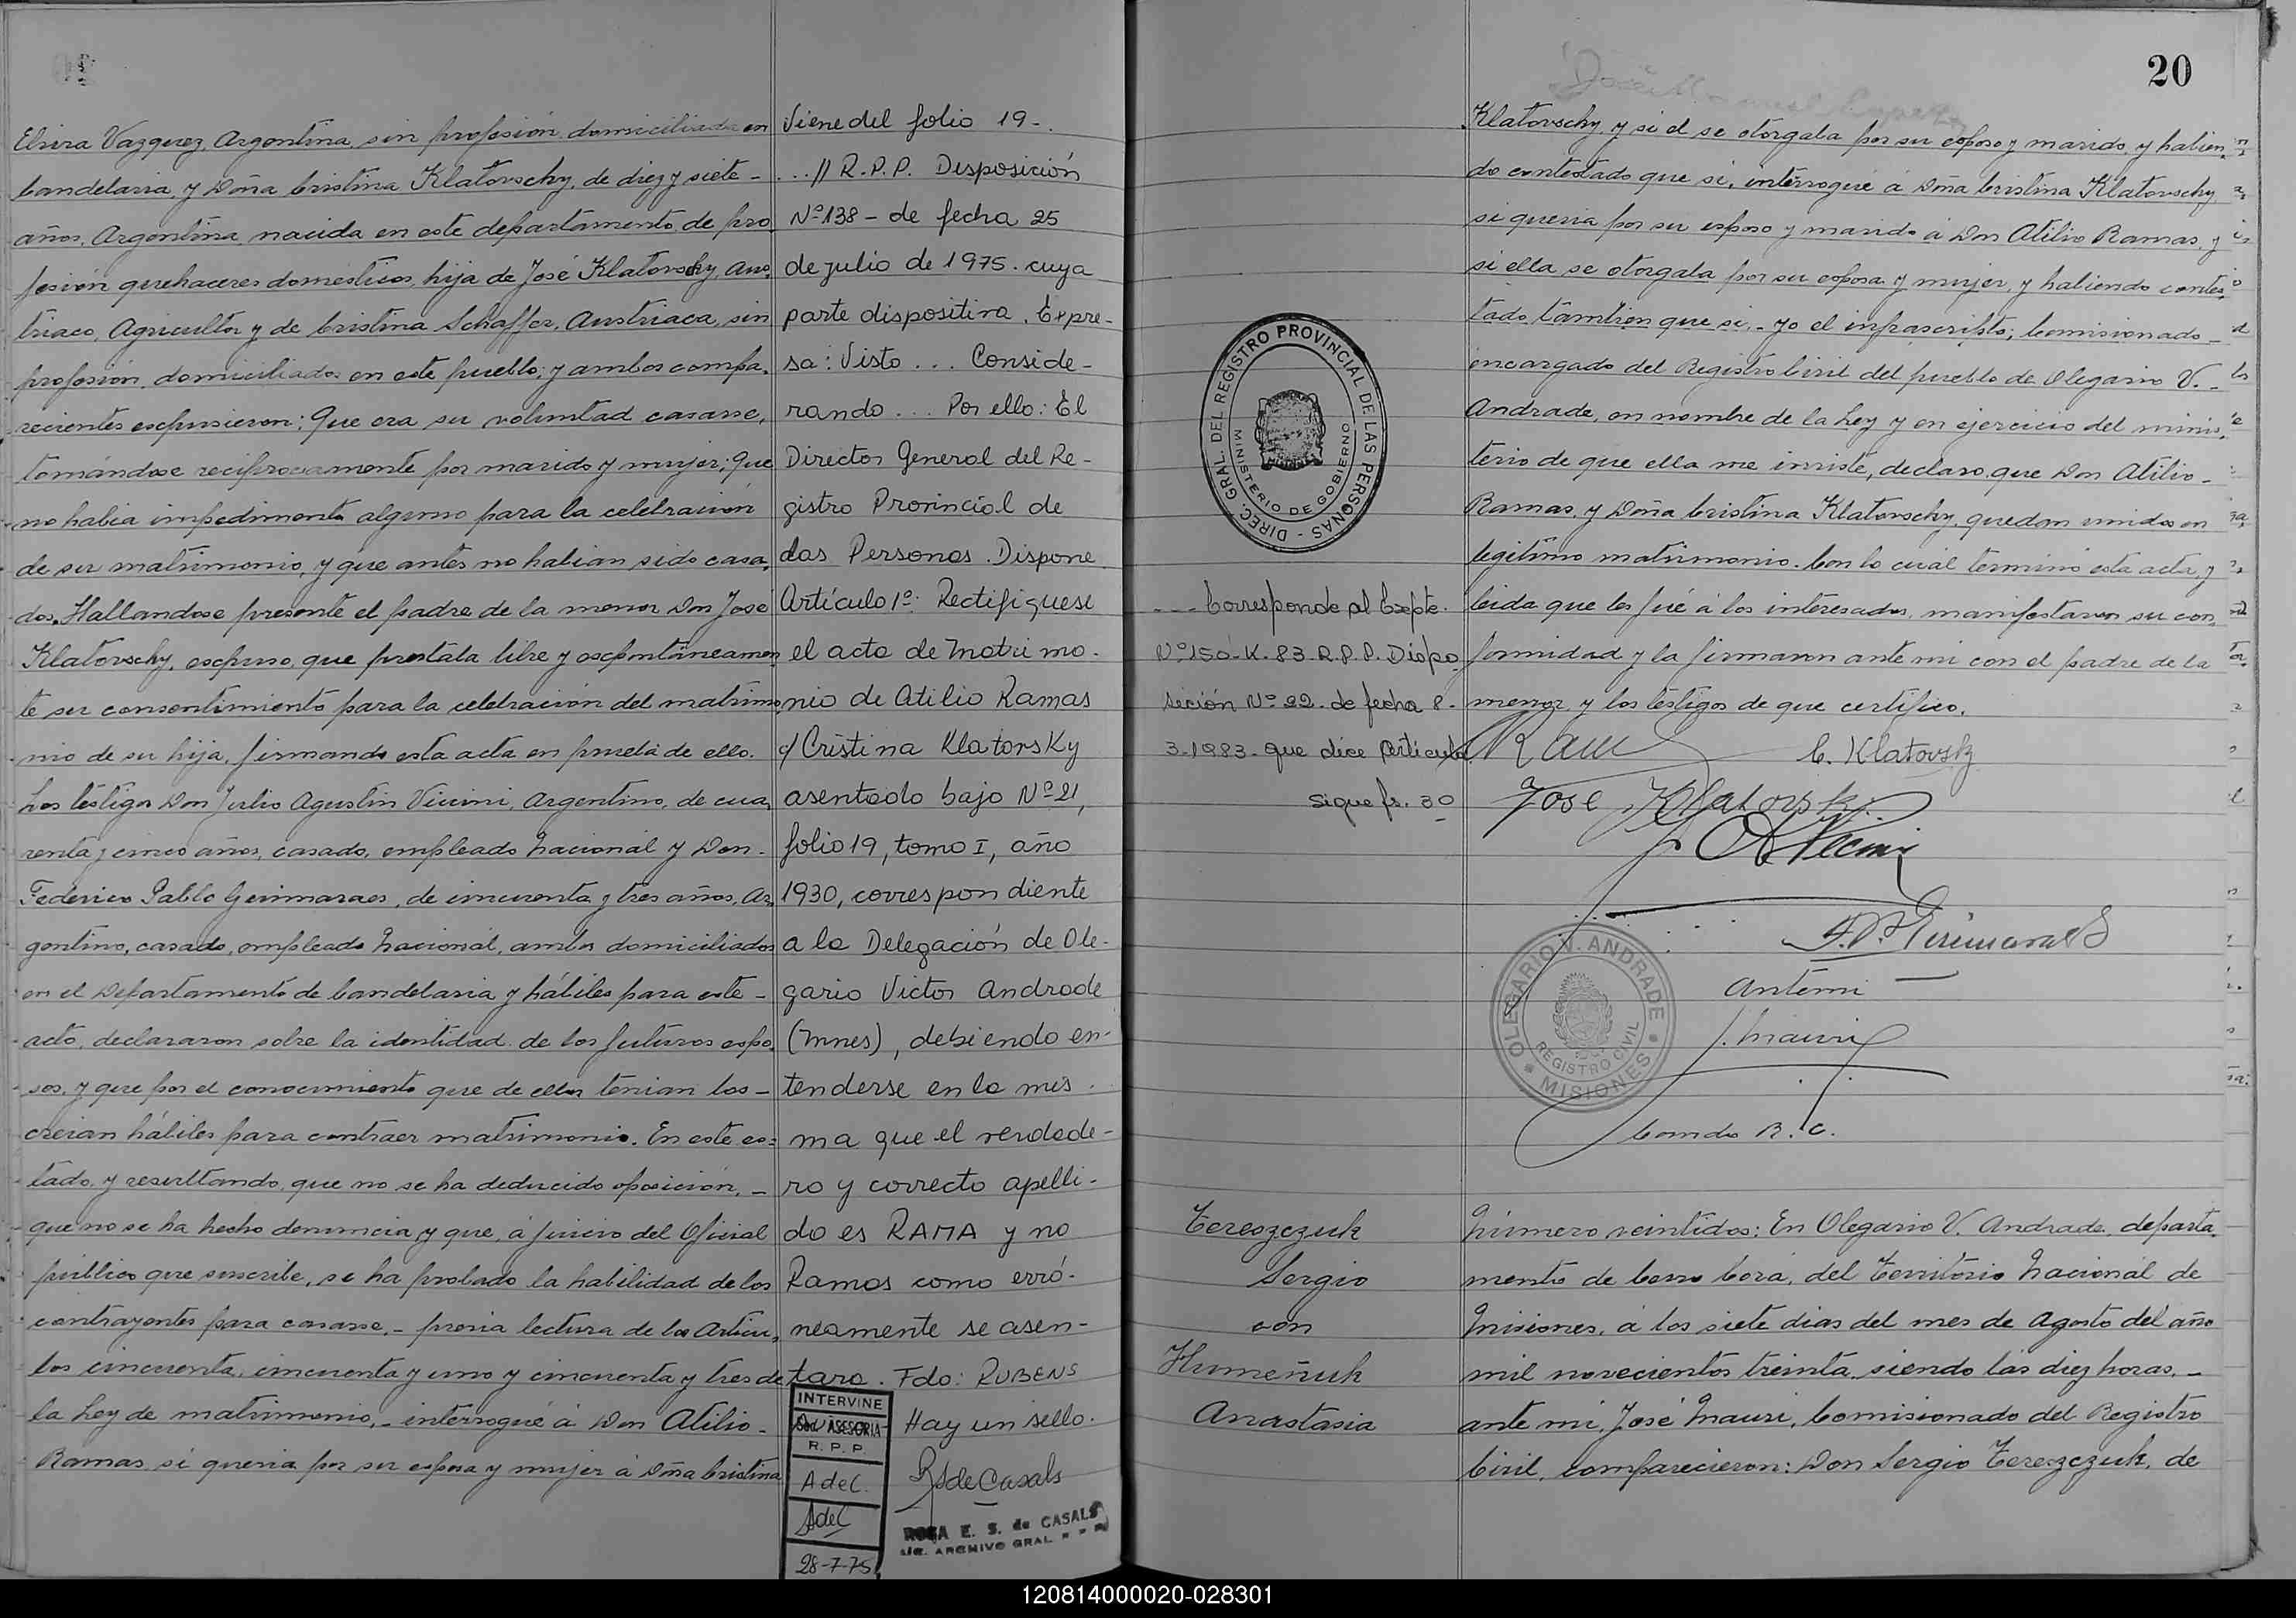 Elvira Vazquez, Argentina, sin profesión, domiciliada en
Candelaria, y Doña Cristina Klatovschy, de diez y siete -
años, Argentina, nacida en este departamento, de pro,
fesión quehaceres domésticos, hija de José Klatovschy, Aus,
triaco, Agricultor y de Cristina Schaffer, Austriaca, sin
profesión, domiciliados en este pueblo; y ambos compa,
recientes expusieron: Que era su voluntad casarse,
tomándose reciprocamente por marido y mujer; Que
no habia impedimento alguno para la celebración
de su matrimonio, y que antes no habian sido casa,
dos. Hallandose presente el padre de la menor Don José
Klatovschy, expuso, que prestaba libre y espontáneamen
te su consentimiento para la celebración del matrimo,
nio de su hija, firmando esta acta en prueba de ello.
Los testigos Don Julio Agustin Vicini, Argentino, de cua,
renta y cinco años, casado, empleado Nacional y Don -
Federico Pablo Guimaraes, de cincuenta y tres años, Ar,
gentino, casado, empleado Nacional, ambos domiciliados
en el Departamento de Candelaria y hábiles para este -
acto, declararon sobre la identidad de los futuros espo,
sos, y que por el conocimiento que de ellos tenian los -
creian hábiles para contraer matrimonio. En este es=
tado, y resultando, que no se ha deducido oposición, -
que no se ha hecho denuncia y que, á juicio del Oficial
público que suscribe, se ha probado la habilidad de los
contrayentes para casarse, - previa lectura de los Artícu,
los cincuenta, cincuenta y uno y cincuenta y tres de
la Ley de matrimonio, - interrogué á Don Atilio -
Ramas si queria por su esposa y mujer á Dña Cristina
Viene del folio 19 -.
...// R.P.P. Disposición
Nº 138 - de fecha 25
de julio de 1975. cuya
parte dispositiva. Expre-
sa: Visto ... Conside-
rando ... Por ello: El
Director General del Re-
gistro Provincial de
las Personas. Dispone
Artículo 1º: Rectifiquese
el acta de Matrimo-
nio de Atilio Ramas
c/ Cristina Klatorsky
asentado bajo Nº 21,
folio 19, tomo I, año
1930, correspondiente
a la Delegación de Ole-
gario Victor Andrade
(Mnes), debiendo en-
tenderse en la mis-
ma que el verdade-
ro y correcto apelli-
do es RAMA y no
Ramas como erró-
neamente se asen-
tara. Fdo: RUBENS
Hay un sello.
INTERVINE
ASESORIA
R.P.P.
A del.
28-7-75
RS de Casals
ROSA E. S. de CASALS
ARCHIVO GRAL
20
DIREC. GRAL. DEL REGISTRO PROVINCIAL DE LAS PERSONAS -
MINISTERIO DE GOBIERNO
--- Corresponde al Expte.
Nº 150-K-83-R.P.P. Dispo
sición Nº 22. de fecha 8-
3-1983- que dice Artículo
sigue fs. 30
Klatovschy, y si él se otorgaba por su esposo y marido, y habien,
do contestado que si, interrogué á Dña Cristina Klatovschy
si queria por su esposo y marido á Don Atilio Ramas, y
si ella se otorgaba por su esposa y mujer, y habiendo contes,
tado tambien que si, - yo el infrascripto; Comisionado -
encargado del Registro Civil del pueblo de Olegario V. -
Andrade, en nombre de la Ley y en ejercicio del minis,
terio de que ella me inviste, declaro que Don Atilio -
Ramas, y Doña Cristina Klatovschy, quedan unidos en
legitimo matrimonio. Con lo cual terminó esta acta, y
leida que les fué á los interesados, manifestaron su con,
formidad y la firmaron ante mi con el padre de la
menor, y los testigos de que certifico.
C. Klatovsky
Jose Klatovsky
F.P. Guimaraes
Antemi
J. Mauri
Comdo R.C.
OLEGARIO V. ANDRADE
REGISTRO CIVIL
MISIONES
Tereszczuk
Sergio
con
Humeñuk
Anastasia
Número veintidos: En Olegario V. Andrade, departa,
mento de Cerro Corá, del Territorio Nacional de
Misiones, á los siete dias del mes de Agosto del año
mil novecientos treinta, siendo las diez horas, -
ante mi, José Mauri, Comisionado del Registro
Civil, comparecieron: Don Sergio Tereszczuk, de
120814000020-028301